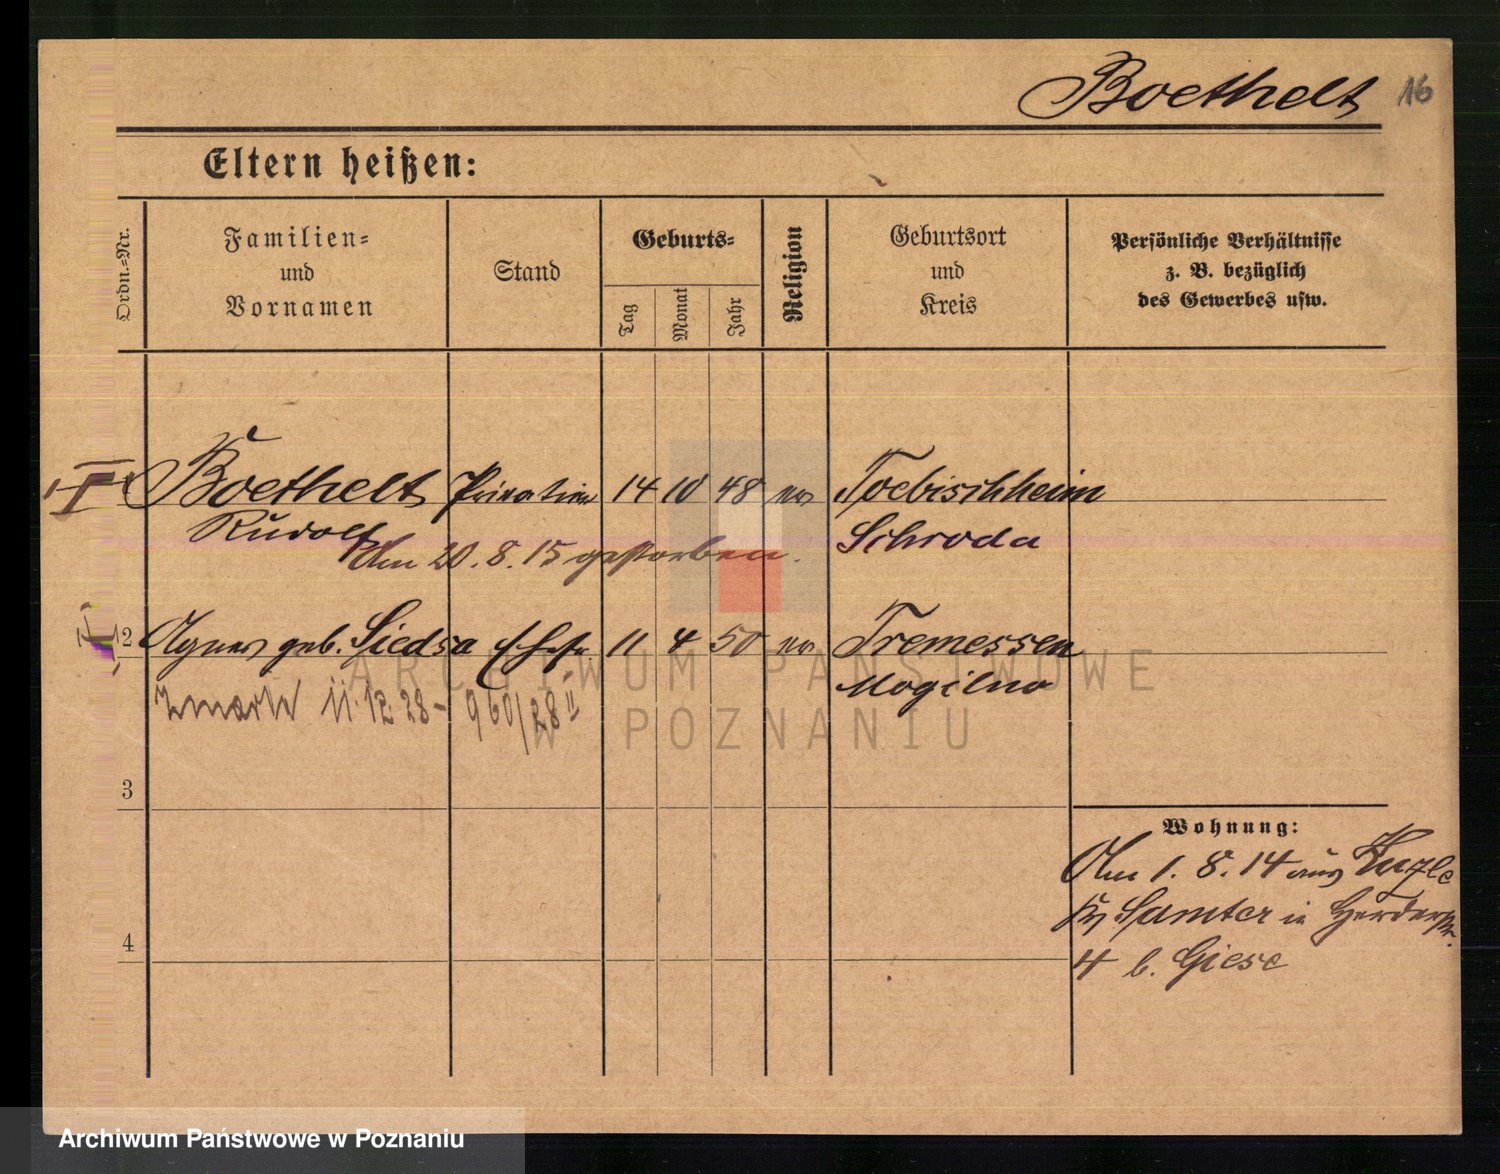 Boethelt 16
Eltern heißen:
Ordn.-Nr.
Familien-
und
Vornamen
Stand
Geburts-
Tag
Monat
Jahr
Religion
Geburtsort
und
Kreis
Persönliche Verhältnisse
z. B. bezüglich
des Gewerbes usw.
I Boethelt Privatier 14 10 48 ev Toebischheim
Rudolf Schroda
Am 20.8.15 gestorben.
2 Agnes geb. Siedsa Ehefr. 11 4 50 ev Tremessen
Mogilno
zmarła 11.12.28 - 960/28 II
3
Wohnung:
Am 1.8.14 aus
Samter in Herderstr.
4 b. Giese
4
ARCHIWUM PAŃSTWOWE
W POZNANIU
Archiwum Państwowe w Poznaniu